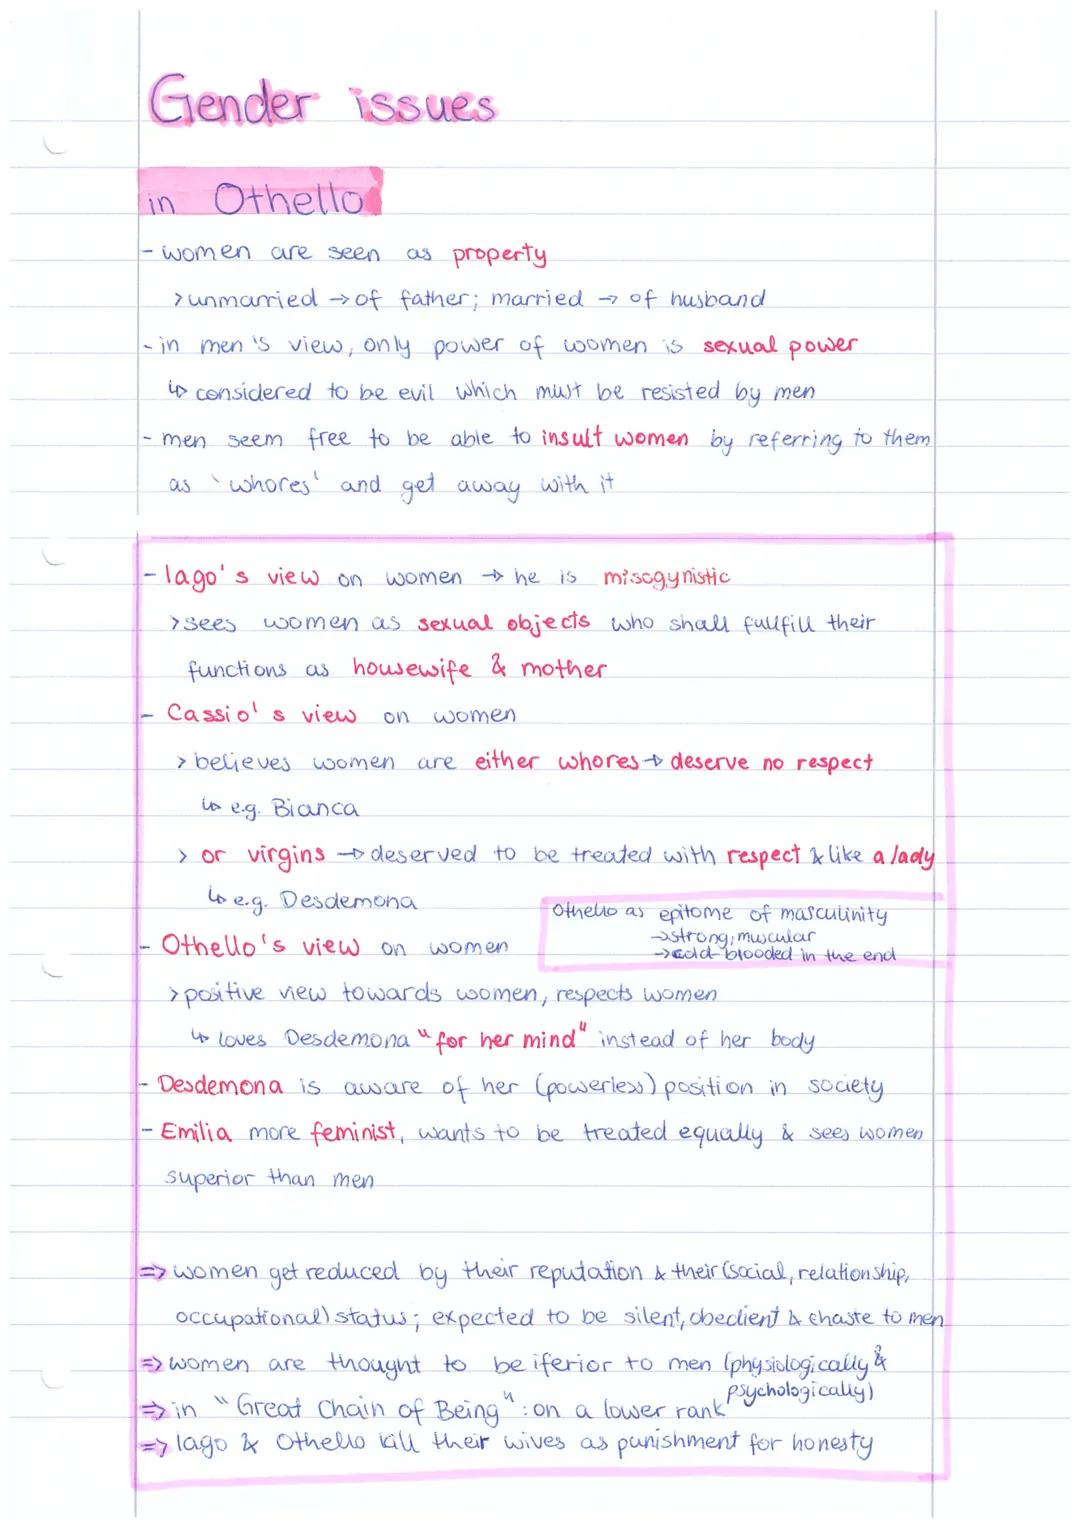 Gender issues
in Othello
- women are seen as property
> unmarried → of father; married → of husband
- in men's view, only power of women is sexual power
↳ considered to be evil which must be resisted by men
- men seem free to be able to insult women by referring to them
as 'whores' and get away with it
- Iago's view on women → he is misogynistic
> sees women as sexual objects who shall fullfill their
functions as housewife & mother
- Cassio's view on women
> believes women are either whores → deserve no respect
↳ e.g. Bianca
> or virgins → deserved to be treated with respect & like a lady
↳ e.g. Desdemona
Othello as epitome of masculinity
→ strong, muscular
→ cold-blooded in the end
- Othello's view on women
> positive view towards women, respects women
↳ loves Desdemona "for her mind" instead of her body
- Desdemona is aware of her (powerless) position in society
- Emilia more feminist, wants to be treated equally & sees women
superior than men
=> women get reduced by their reputation & their (social, relationship,
occupational) status; expected to be silent, obedient & chaste to men
=> women are thought to be iferior to men (physiologically &
psychologically)
=> in "Great Chain of Being": on a lower rank
=> Iago & Othello kill their wives as punishment for honesty